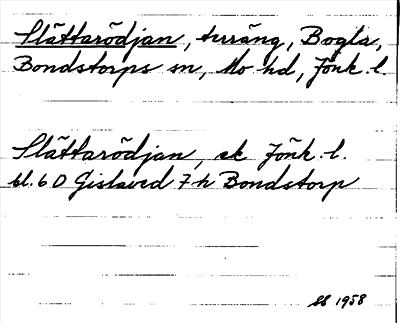 Slättarödjan, terräng, Bogla,
Bondstorps sn, Mo hd, Jönk. l.
Slättarödjan, ek Jönk. l.
bl. 6 D Gislaved 7 h Bondstorp
SS 1958